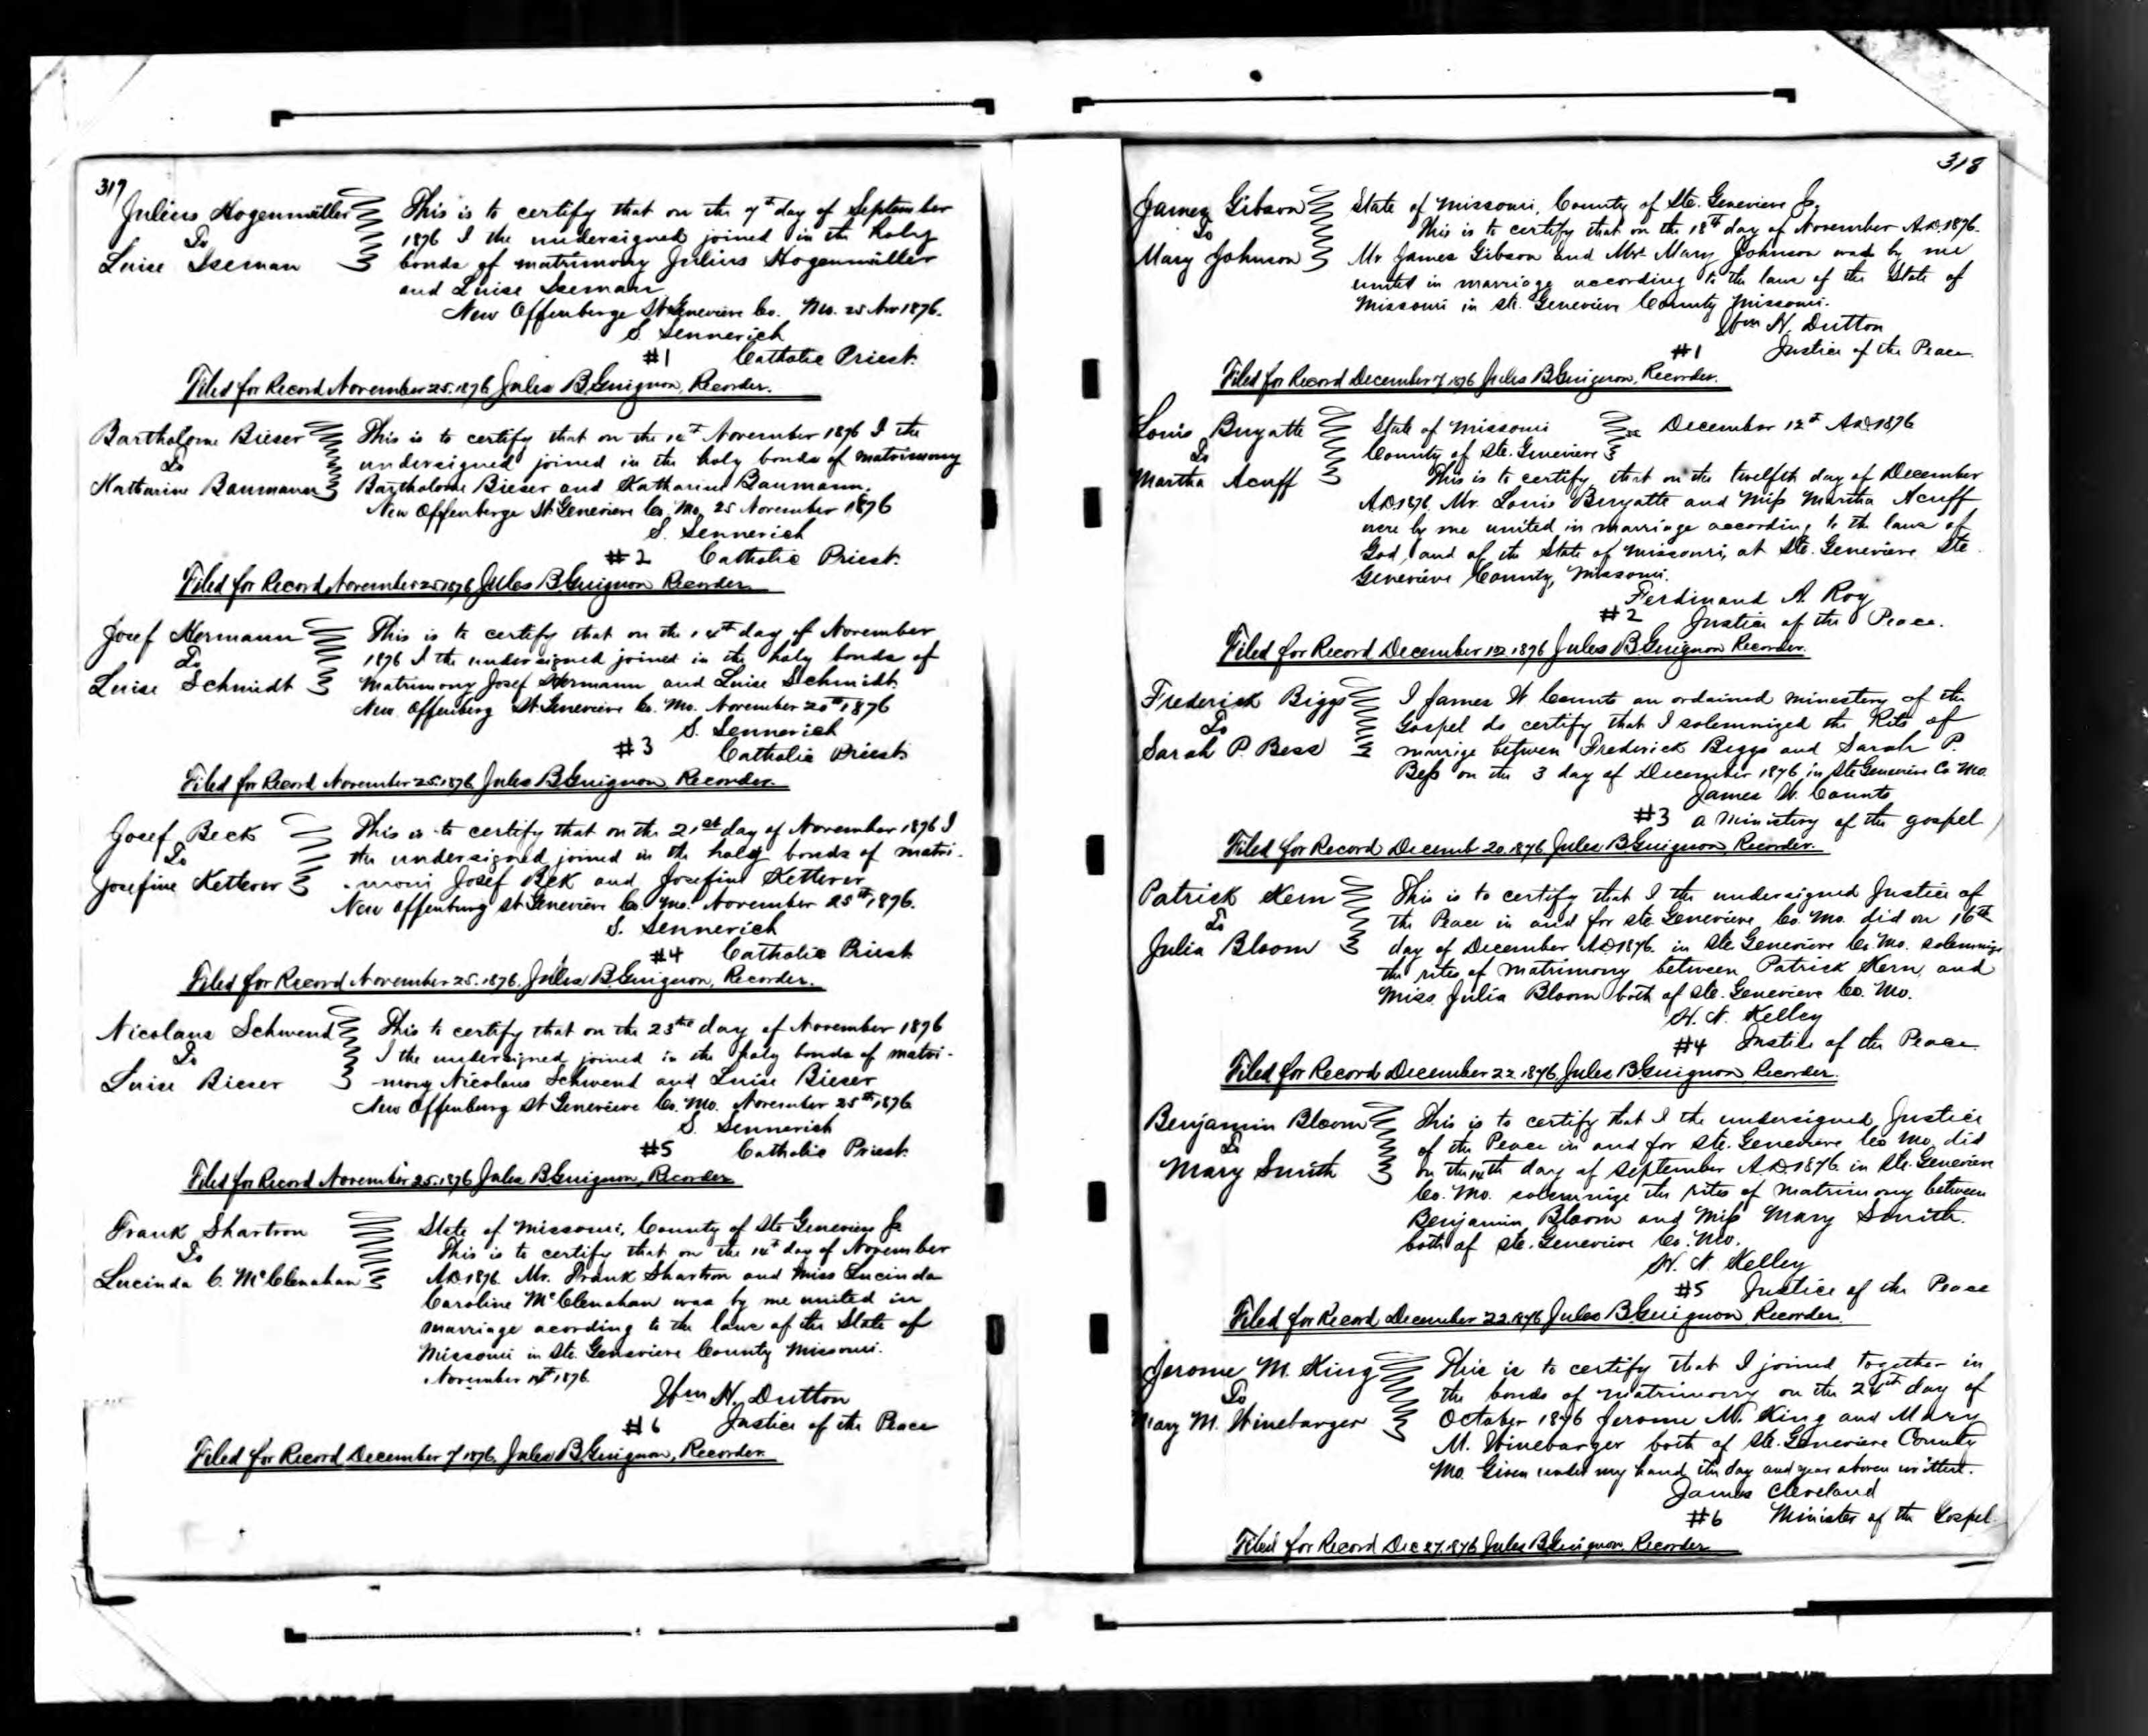 317
Julius Hogenmüller
To
Luise Iseman
This is to certify that on the 7th day of September
1876 I the undersigned joined in the holy
bonds of matrimony Julius Hogenmüller
and Luise Iseman
New Offenberge St Genevieve Co. Mo. 25 Nov 1876.
S. Sennerich
#1 Catholic Priest.
Filed for Record November 25. 1876 Jules B. Guignon, Recorder.
Bartholome Bieser
To
Katharine Baumann
This is to certify that on the November 1876 I the
undersigned joined in the holy bonds of matrimony
Bartholome Bieser and Katharine Baumann.
New Offenberge St. Genevieve Co. Mo. 25 November 1876
S. Sennerich
#2 Catholic Priest.
Filed for Record November 25 1876 Jules B. Guignon Recorder
Josef Hermann
To
Luise Schmidt
This is to certify that on the 14th day of November
1876 I the undersigned joined in the holy bonds of
Matrimony Josef Hermann and Luise Schmidt
New Offenberg St Genevieve Co. Mo. November 1876
S. Sennerich
#3 Catholic Priest.
Filed for Record November 25. 1876 Jules B. Guignon, Recorder.
Josef Beck
To
Josefine Ketterer
This is to certify that on the 21st day of November 1876 I
the undersigned joined in the holy bonds of matri-
-moni Josef Bek and Josefine Ketterer
New Offenburg St Genevieve Co. Mo. November 25th 1876.
S. Sennerich
#4 Catholic Priest
Filed for Record November 25. 1876. Jules B. Guignon, Recorder.
Nicolaus Schwend
To
Luise Bieser
This to certify that on the 23th day of November 1876
I the undersigned joined in the holy bonds of matri-
-mony Nicolaus Schwend and Luise Bieser
New Offenburg St Genevieve Co. Mo. November 25th 1876
S. Sennerich
#5 Catholic Priest.
Filed for Record November 25. 1876 Jules B. Guignon, Recorder
Frank Shartron
To
Lucinda C. McClenahan
State of Missouri, County of Ste Genevieve
This is to certify that on the 14th day of November
A.D 1876. Mr. Frank Shartron and Miss Lucinda
Caroline McClenahan was by me united in
marriage acording to the laws of the State of
Missouri in Ste. Genevieve County Missouri.
November 14th 1876.
Wm H. Dutton
#6 Justice of the Peace
Filed for Record December 7 1876. Jules B. Guignon, Recorder.
318
James Gibson
To
Mary Johnson
State of Missouri, County of Ste. Genevieve
This is to certify that on the 18th day of November A.D. 1876.
Mr James Gibson and Mrs Mary Johnson was by me
united in marriage according to the laws of the State of
Missouri in Ste. Genevieve County Missouri.
Wm H. Dutton
#1 Justice of the Peace
Filed for Record December 7 1876 Jules B. Guignon, Recorder.
Louis Buyatte
To
Martha Acuff
State of Missouri ss December 12th A.D. 1876
County of Ste. Genevieve
This is to certify, that on the twelfth day of December
A.D. 1876. Mr. Louis Buyatte and Miss Martha Acuff
were by me united in marriage according to the laws of
God, and of the State of Missouri, at Ste. Genevieve Ste.
Genevieve County, Missouri.
Ferdinand A. Roy
#2 Justice of the Peace.
Filed for Record December 12. 1876 Jules B. Guignon Recorder.
Frederick Biggs
To
Sarah P. Bess
I James W Counts an ordained ministery of the
Gospel do certify that I solemnized the Rits of
marrige betwen Frederick Beggs and Sarah P.
Bess on the 3 day of December 1876 in Ste Genevieve Co Mo.
James W. Counts
#3 a Ministery of the gospel
Filed for Record Decemb 20. 1876 Jules B. Guignon, Recorder.
Patrick Kern
To
Julia Bloom
This is to certify that I the undersigned Justice of
the Peace in and for Ste. Genevieve Co. Mo. did on 16th
day of December A.D 1876. in Ste Genevieve Co. Mo. solemnize
the rites of matrimony between Patrick Kern and
Miss Julia Bloom both of Ste. Genevieve Co. Mo.
H. N. Kelley
#4 Justice of the Peace
Filed for Record December 22. 1876, Jules B. Guignon, Recorder.
Benjamin Bloom
To
Mary Smith
This is to certify that I the undersigned Justice
of the Peace in and for Ste. Genevieve Co Mo. did
on the 14th day of September A.D 1876. in Ste. Genevieve
Co. Mo. solemnize the rites of matrimony between
Benjamin Bloom and Miss Mary Smith.
both of Ste. Genevieve Co. Mo.
H. N. Kelley
#5 Justice of the Peace
Filed for Record December 22. 1876 Jules B. Guignon, Recorder.
Jerome M. King
To
Mary M. Winebarger
This is to certify that I joined together in
the bonds of matrimony on the 24th day of
October 1876 Jerome M. King and Mary
M. Winebarger both of Ste. Genevieve County
Mo. Given under my hand the day and year aboven written.
James Cleveland
#6 Minister of the Gospel.
Filed for Record Dec 27. 1876 Jules B. Guignon, Recorder